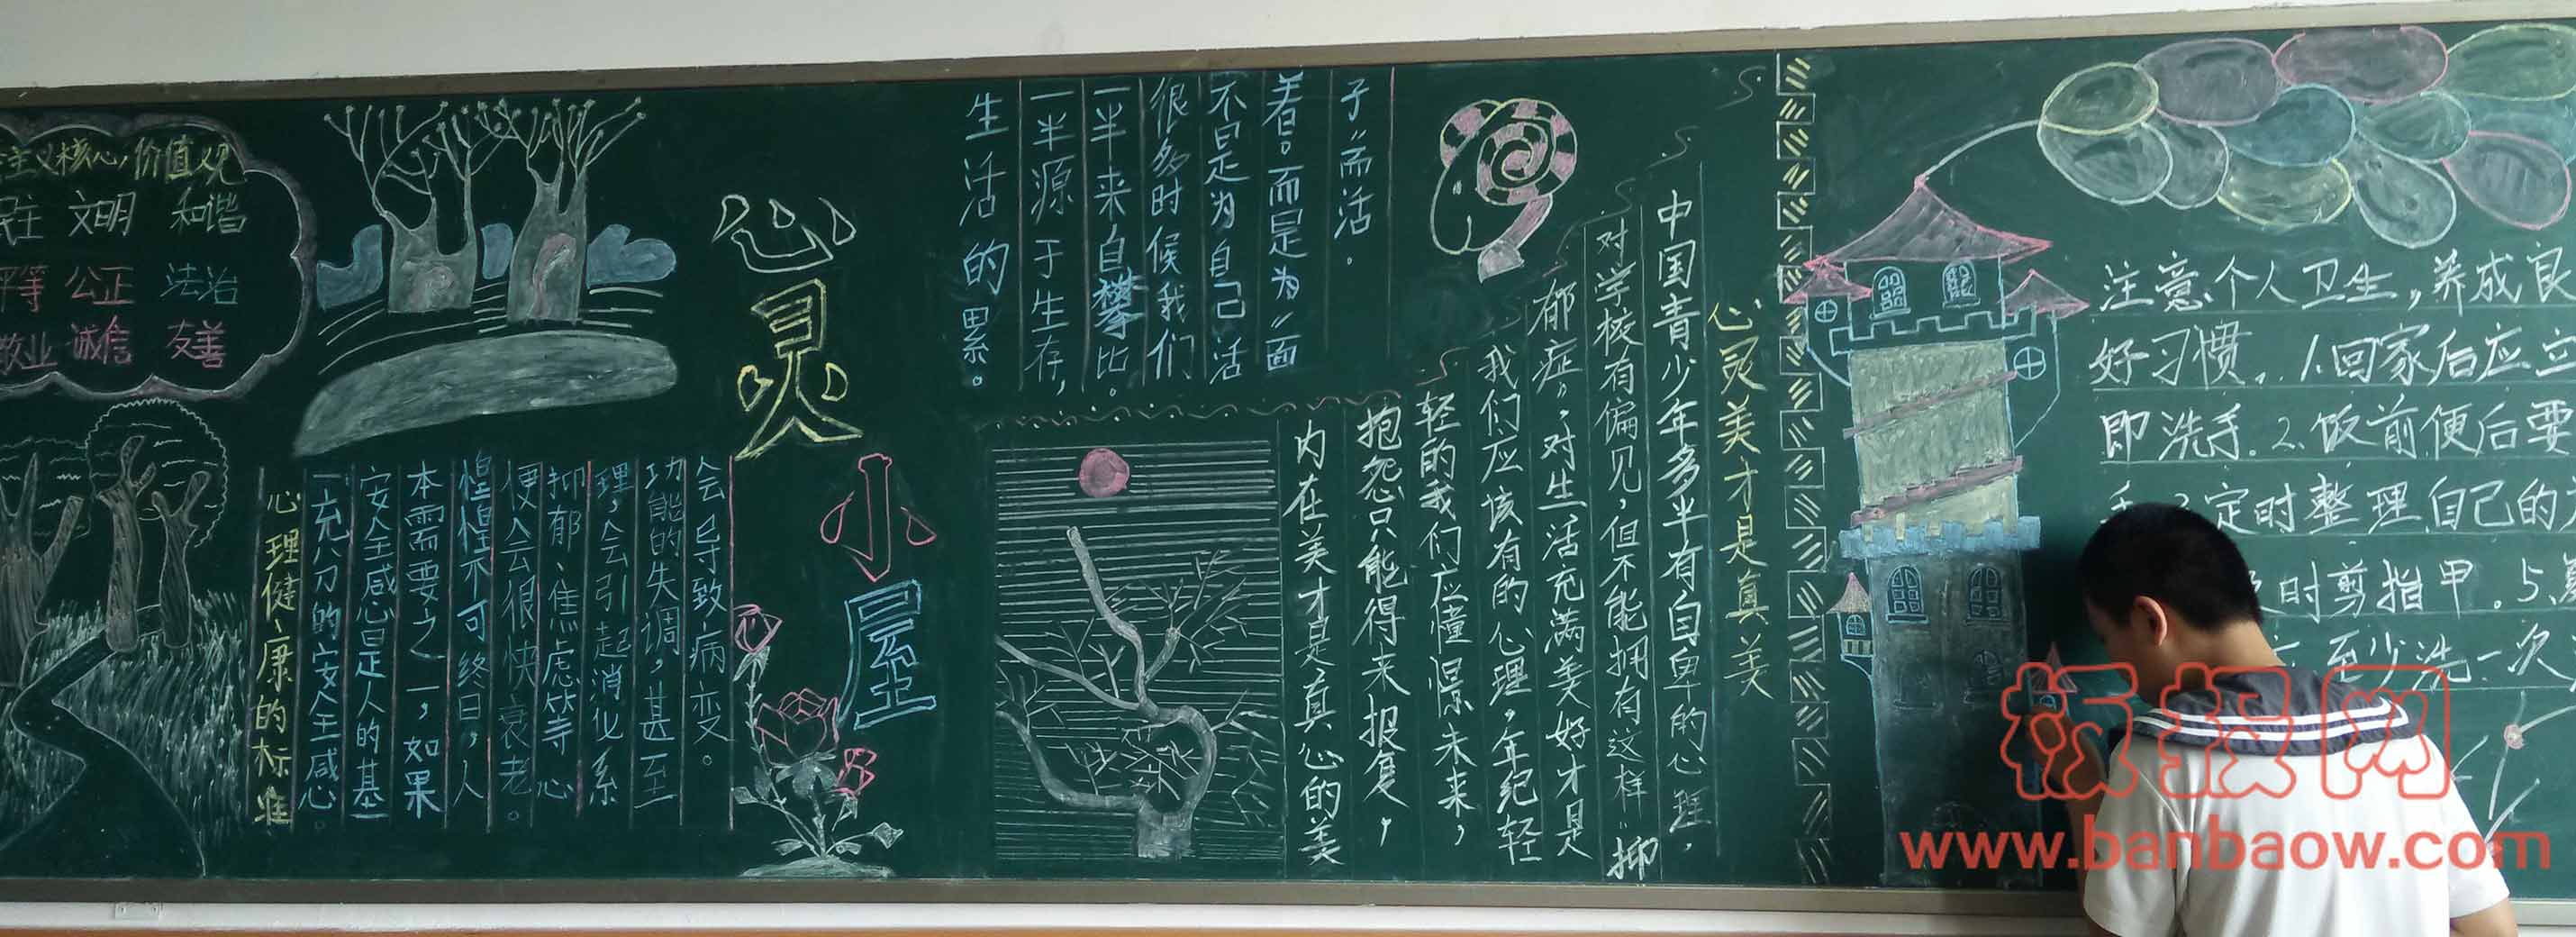 主义核心价值观
民主 文明 和谐
平等 公正 法治
敬业 诚信 友善
心灵小屋
心理健康的标准
一充分的安全感。
安全感是人的基
本需要之一，如果
惶惶不可终日，人
便会很快衰老。
抑郁、焦虑等心
理，会引起消化系
功能的失调，甚至
会导致病变。
生活的累。
一半源于生存，
一半来自攀比。
很多时候我们
不是为自己活
着。而是为“面
子”而活。
心灵美才是真美
中国青少年多半有自卑的心理，
对学校有偏见，但不能拥有这样“抑
郁症”，对生活充满美好才是
我们应该有的心理，年纪轻
轻的我们应憧憬未来，
抱怨只能得来报复，
内在美才是真心的美
注意个人卫生，养成良
好习惯。1.回家后应立
即洗手。2.饭前便后要
定时整理自己的
时剪指甲。5.
至少洗一次
板报网
www.banbaow.com